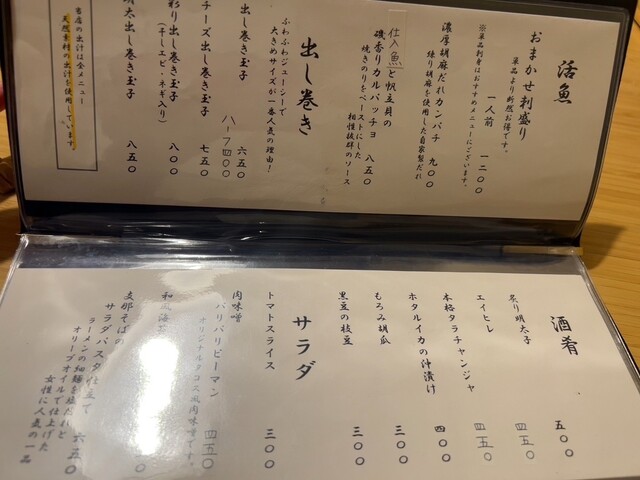 活魚
おまかせ刺盛り
単品より断然お得です。
一人前 一二〇〇
※単品刺身はおすすめメニューにございます。
濃厚胡麻だれカンパチ 九〇〇
練り胡麻を使用した自家製だれ
仕入魚と帆立貝の
磯香りカルパッチョ 八五〇
焼きのりをペーストにした
相性抜群のソース
出し巻き
ふわふわジューシーで
大きめサイズが一番人気の理由!
出し巻き玉子 六五〇
ハーフ 四〇〇
チーズ出し巻き玉子 七五〇
彩り出し巻き玉子 八〇〇
(干しエビ・ネギ入り)
明太出し巻き玉子 八五〇
当店の出汁は全メニュー
天然素材の出汁を使用しています
酒肴
炙り明太子 五〇〇
エイヒレ 四五〇
本格タラチャンジャ 四五〇
ホタルイカの沖漬け 四〇〇
もろみ胡瓜 三〇〇
黒豆の枝豆 三〇〇
サラダ
トマトスライス 三〇〇
肉味噌
パリパリピーマン 四五〇
オリジナルタコス風肉味噌です。
和風海
支那そばの
サラダパスタ仕立て 六五〇
ラーメンの細麺を塩だれと
オリーブオイルで仕上げた
女性に人気の一品